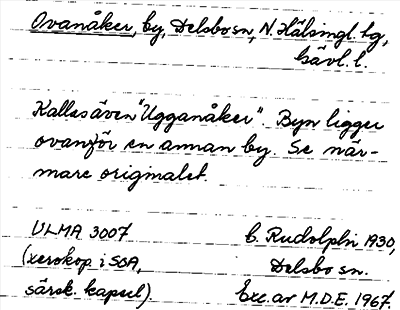 Ovanåker, by, Delsbo sn, N. Hälsingl. tg,
Gävl. l.
Kallas även "Ugganåker". Byn ligger
ovanför en annan by. Se när-
mare originalet.
ULMA 3007
(xerokop. i SOA,
särsk. kapsel).
C. Rudolphi 1930,
Delsbo sn.
Exc. av M.D.E. 1967.